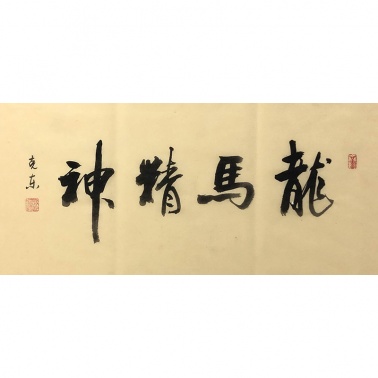 龍馬精神
克东